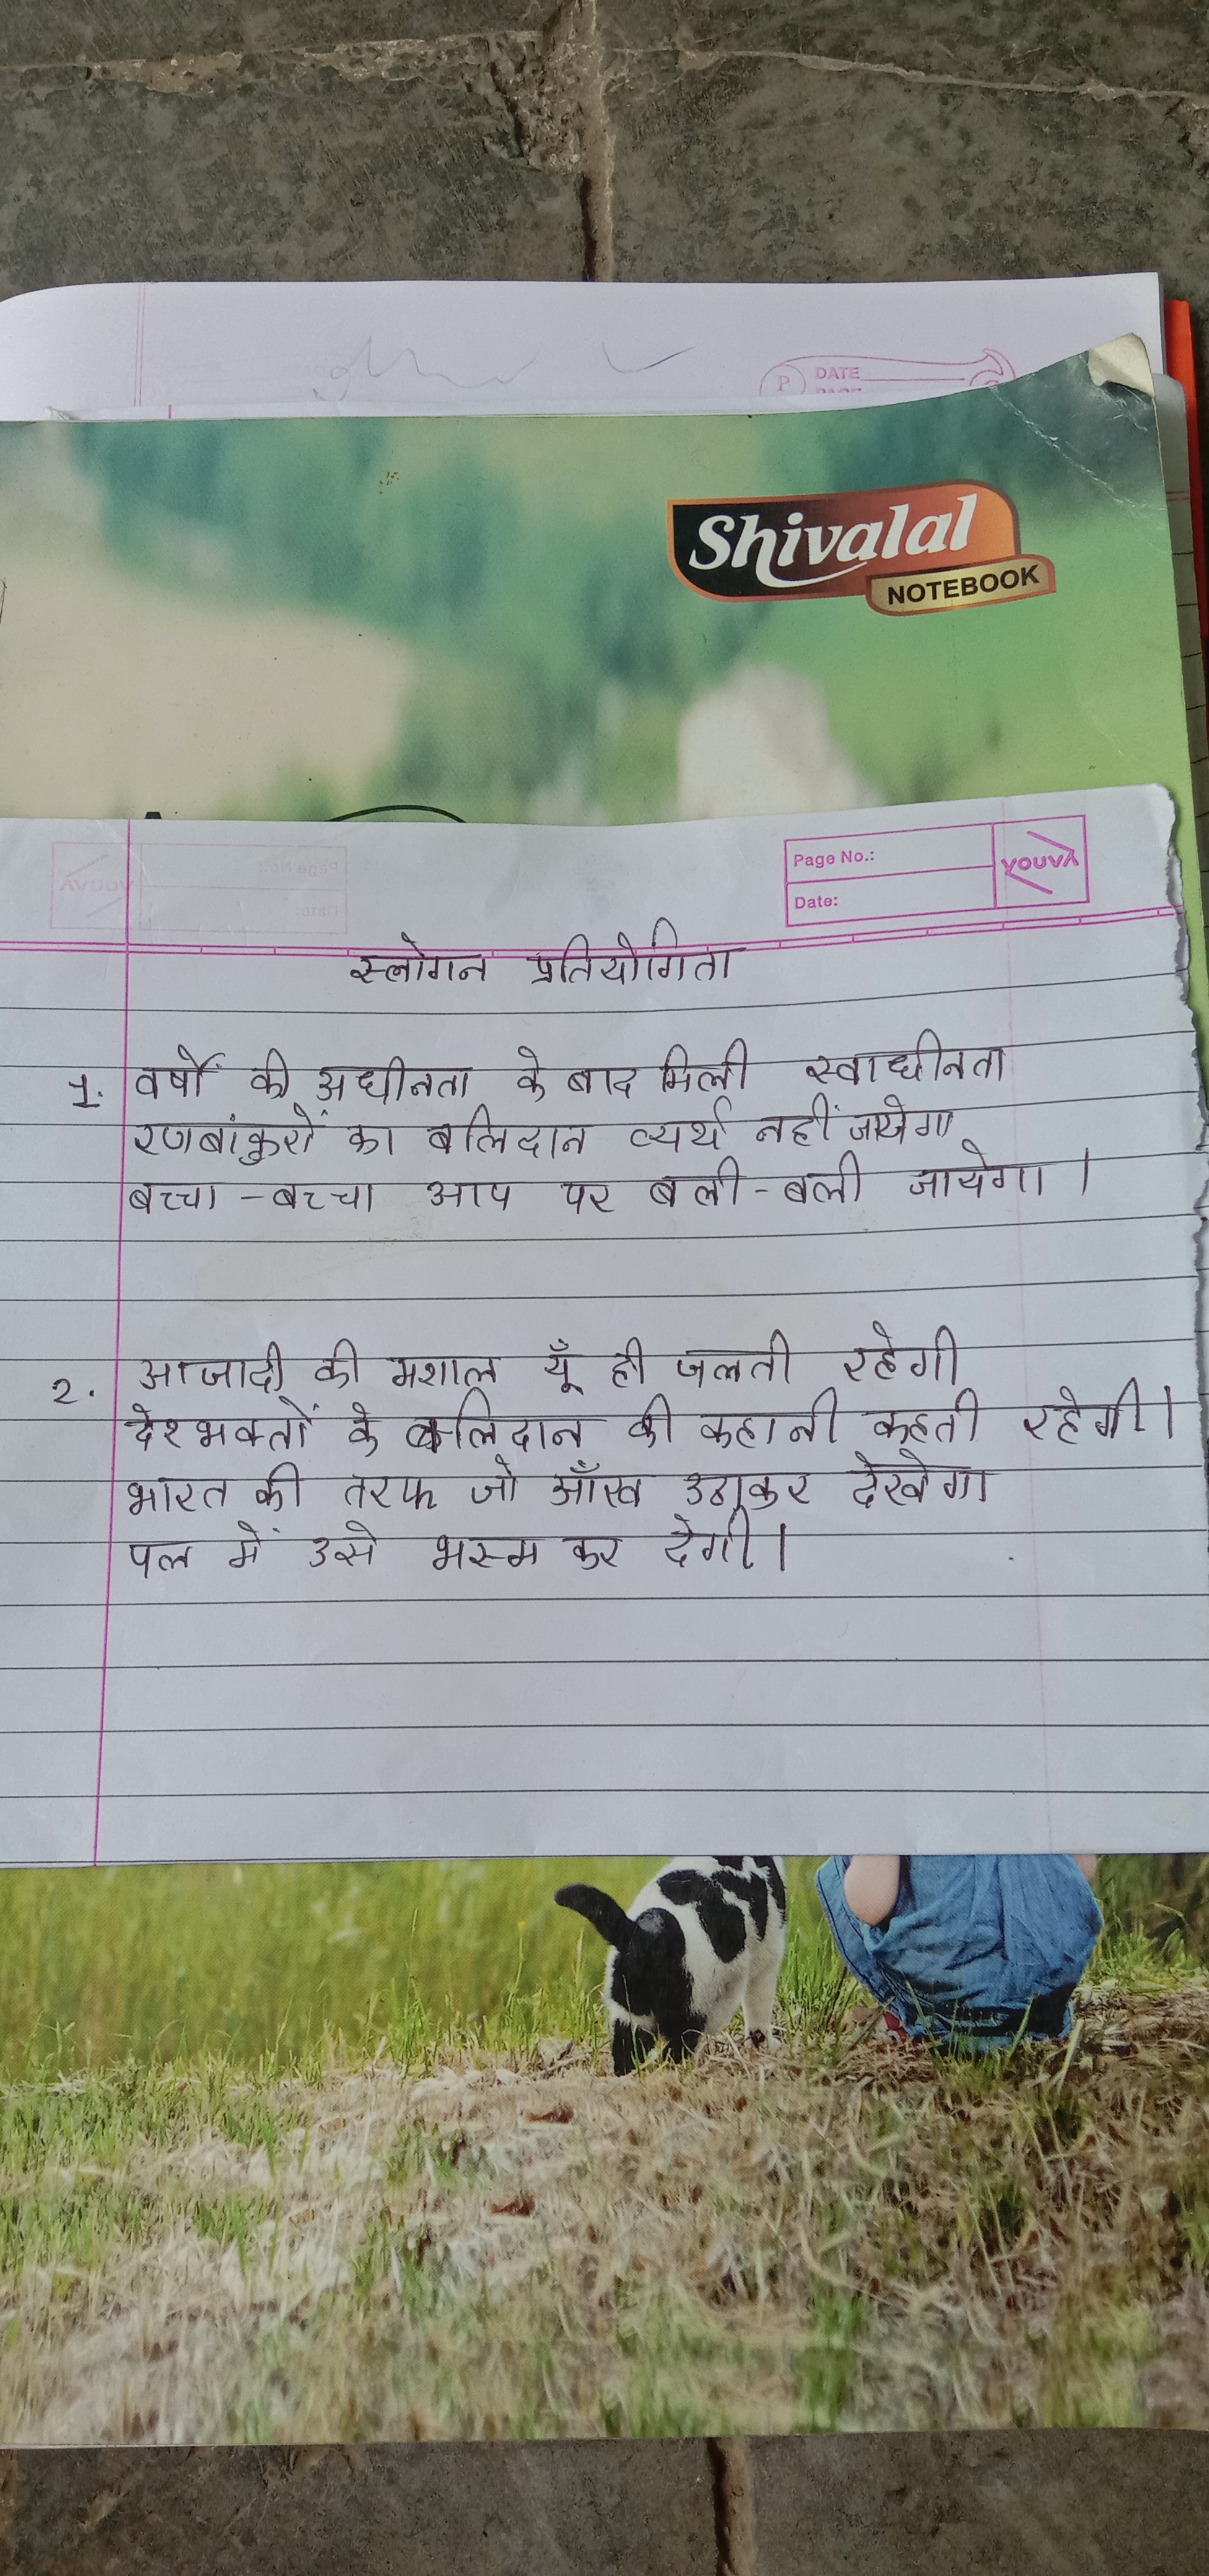 DATE
Shivalal
NOTEBOOK
Page No.:
youva
Date:
स्लोगन प्रतियोगिता
1. वर्षों की अधीनता के बाद मिली स्वाधीनता
रणबांकुरों का बलिदान व्यर्थ नहीं जायेगा
बच्चा-बच्चा आप पर बली-बली जायेगा।
2. आजादी की मशाल यूँ ही जलती रहेगी
देशभक्तों के बलिदान की कहानी कहती रहेगी।
भारत की तरफ जो आँख उठाकर देखेगा
पल में उसे भस्म कर देगी।